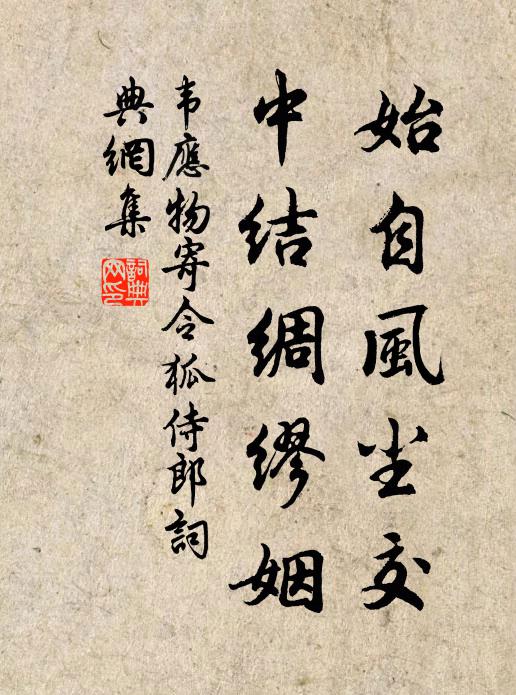 始自風尘交
中结綢缪姻
韦應物寄令狐侍郎詞
典網集
詞典
网印